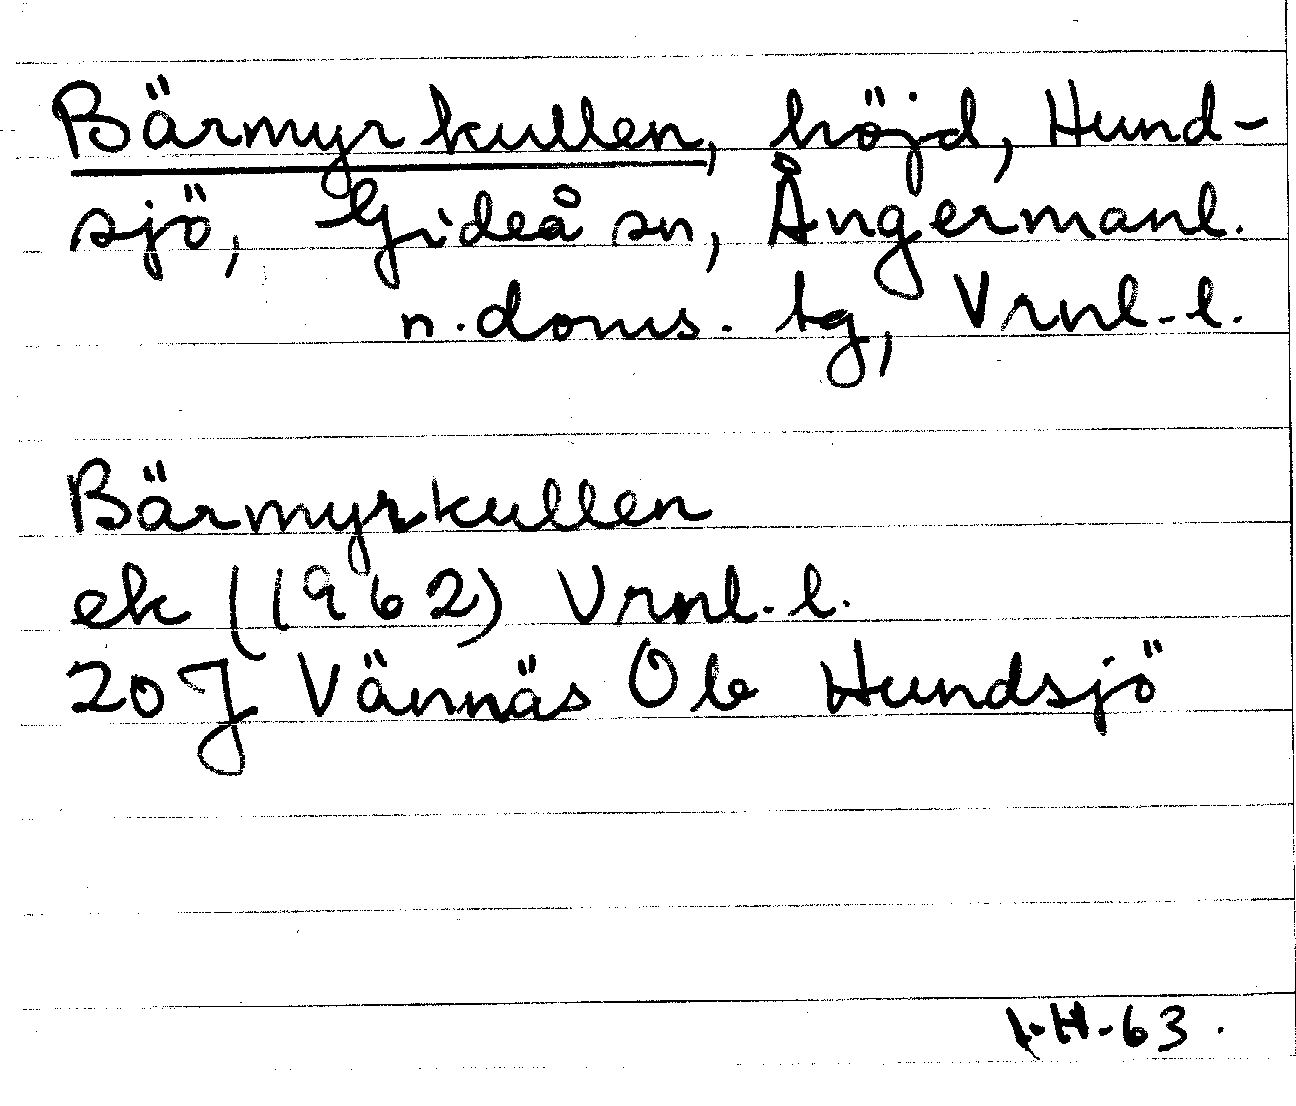 Bärmyrkullen, höjd, Hund-
sjö, Gideå sn, Ångermanl.
n. doms. tg, Vrnl-l.
Bärmyrkullen
ek (1962) Vrnl-l.
20J Vännäs Ob Hundsjö
I.H-63.